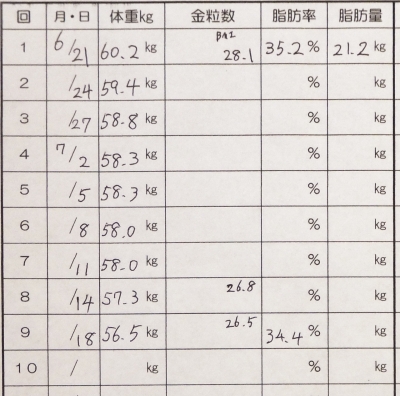 回 月・日 体重kg 金粒数 脂肪率 脂肪量
1 6/21 60.2 kg BMI 28.1 35.2 % 21.2 kg
2 /24 59.4 kg % kg
3 /27 58.8 kg % kg
4 7/2 58.3 kg % kg
5 /5 58.3 kg % kg
6 /8 58.0 kg % kg
7 /11 58.0 kg % kg
8 /14 57.3 kg 26.8 % kg
9 /18 56.5 kg 26.5 34.4 % kg
10 / kg % kg